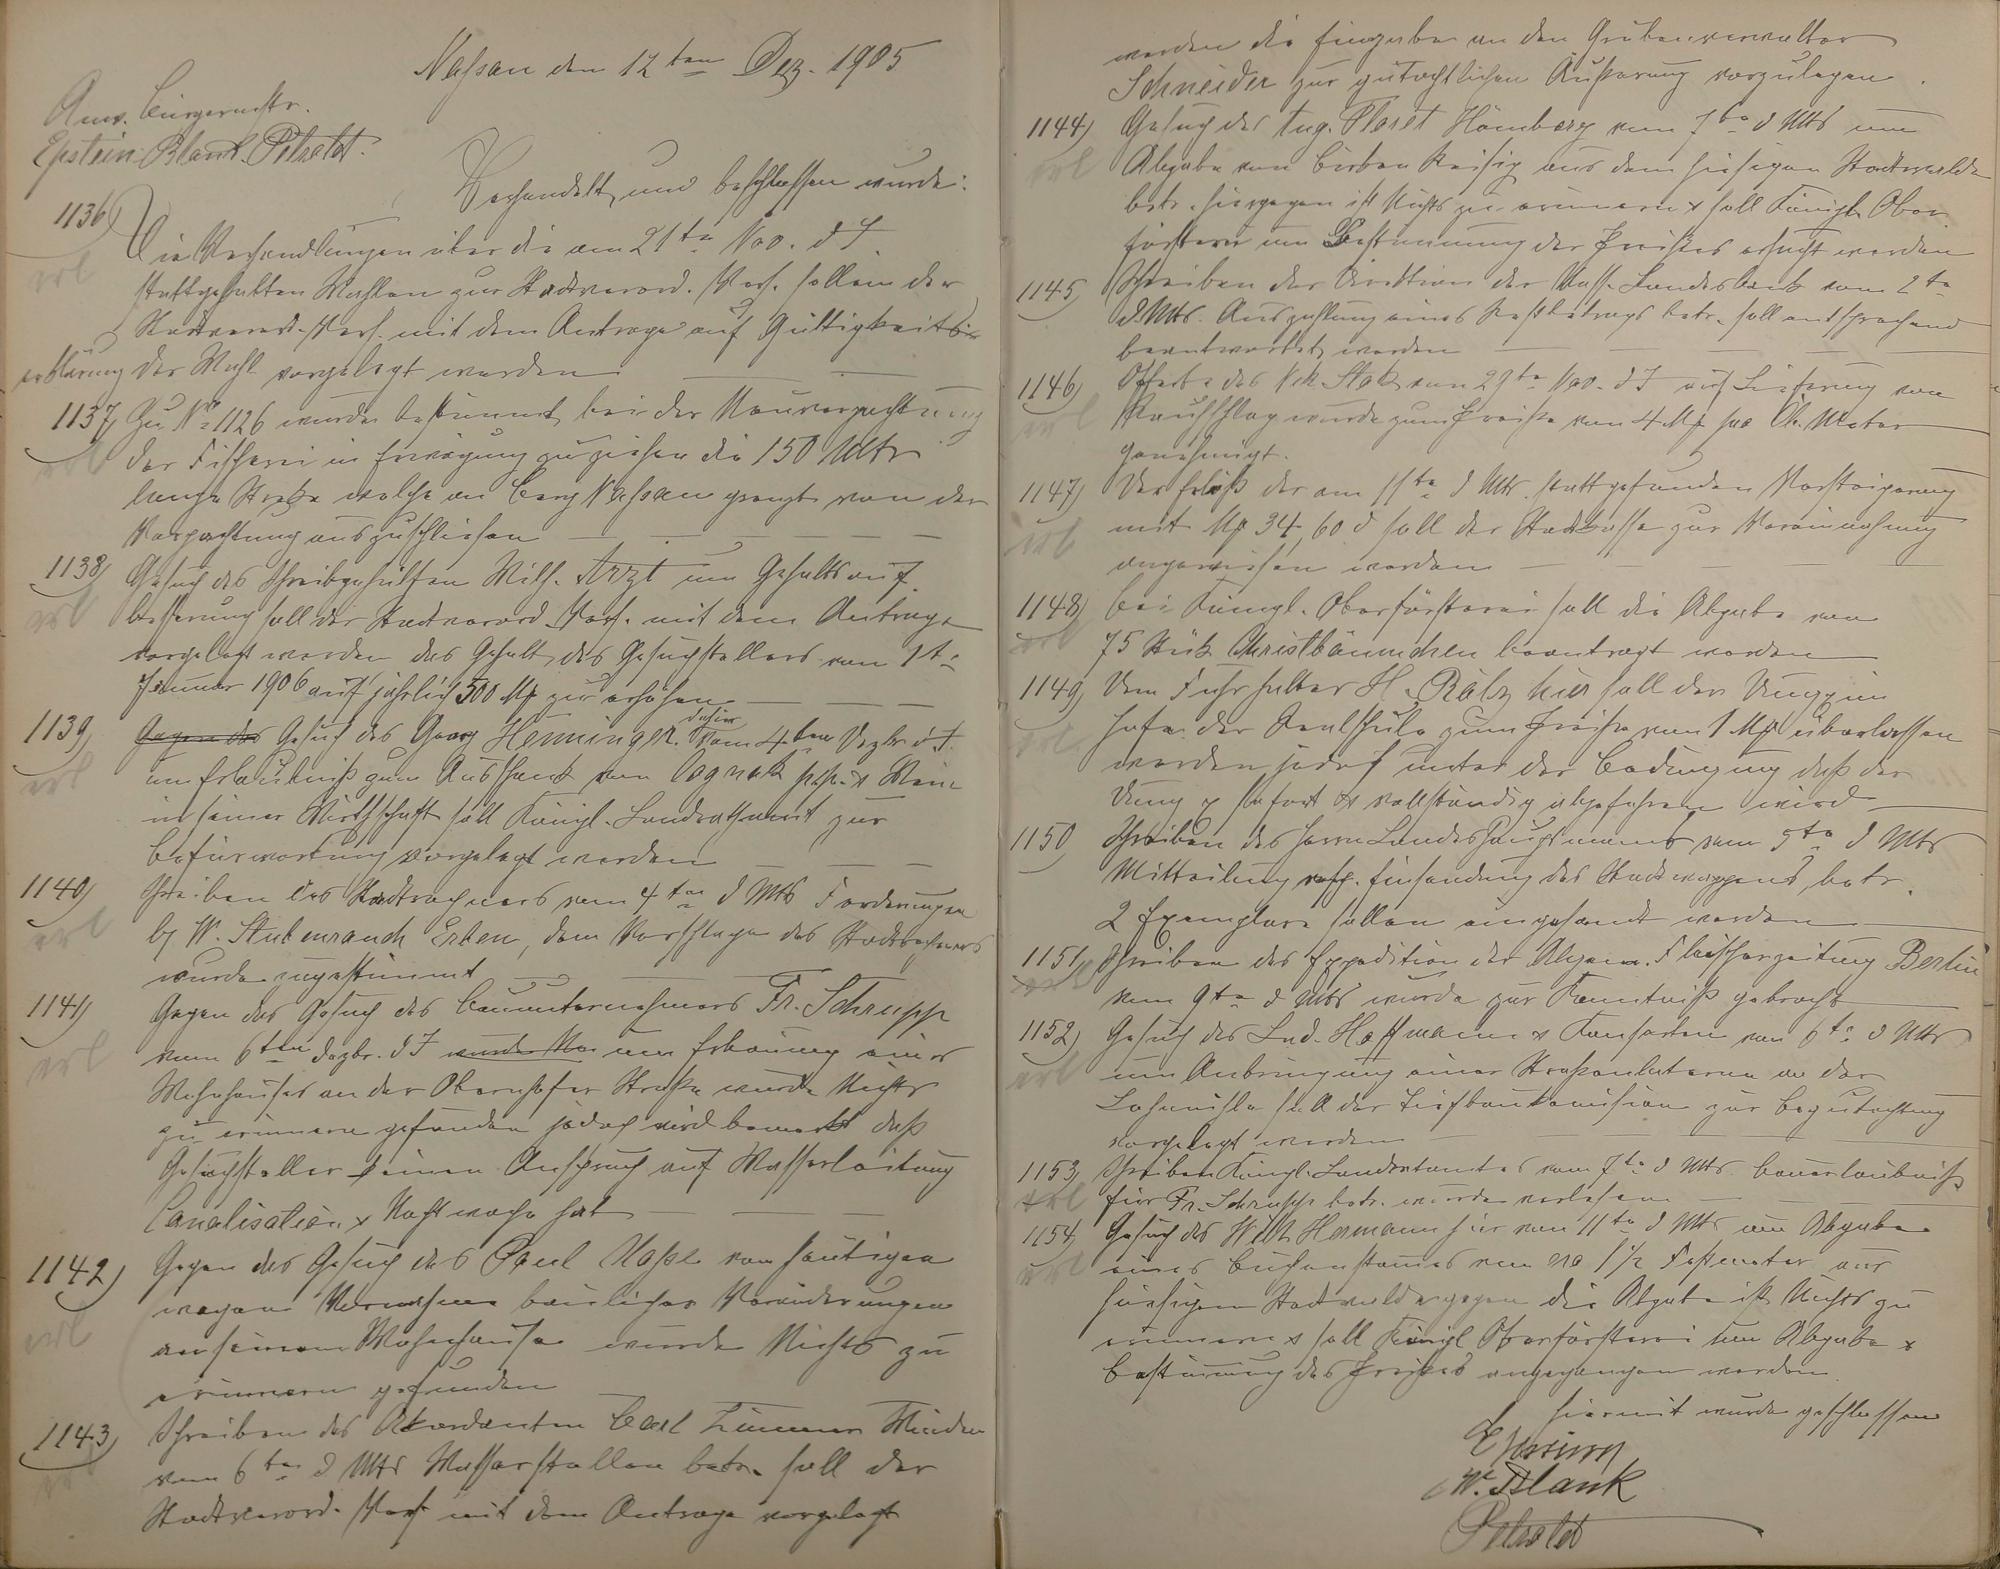 Nassau den 12ten Dez. 1905
Anw. Bürgermstr.
Epstein. Blank. Petzoldt.
Verhandelt und beschlossen wurde:
1136) Die Verhandlungen über die am 21ten Nov. d J.
erl
stattgehabten Wahlen zur Stadtverord. Vers. sollen der
Stadtverord. Vers. mit dem Antrage auf Gültigkeits-
erklärung der Wahl vorgelegt werden
1137) Zu No 1126 wurde bestimmt bei der Neuverpachtung
erl
der Fischerei in Erwägung zu ziehen die 150 Mtr
lange Strecke welche an Berg Nassau grenzt von der
Verpachtung auszuschliesen
1138) Gesuch des Schreibgehülfen Wilh. Arzt um Gehaltsauf-
erl
besserung soll der Stadtverord. Vers. mit dem Antrage
vorgelegt werden das Gehalt des Gesuchstellers vom 1ten
Januar 1906 auf jährlich 500 Mk zu erhöhen
1139) Gegen das Gesuch des Georg Henninger dahier vom 4ten Dezbr. d J.
erl
um Erlaubniß zum Ausschank von Cognak & Wein
in seiner Wirthschaft soll Königl. Landrathsamt zur
Befürwortung vorgelegt werden
1140) Schreiben des Stadtrechners vom 4ten d Mts Forderungen
erl
W. Stubenrauch Erben, dem Vorschlage des Stadtrechners
wurde zugestimmt
1141) Gegen das Gesuch des Bauunternehmers Fr. Schrupp
erl
vom 6ten Dezbr. d J um Erbauung eines
Wohnhauses an der Obernhofer Straße wurde Nichts
zu erinnern gefunden jedoch wird bemerkt daß
Gesuchsteller keinen Anspruch auf Wasserleitung
Canalisation & Nachtwache hat
1142) Gegen das Gesuch des Paul von heutigen
erl
wegen Vornahme baulicher Veränderungen
an seinem Wohnhause wurde Nichts zu
erinnern gefunden
1143) Schreiben des Akordanten Carl Zimmer
vom 6ten d Mts Wasserstollen betr. soll der
Stadtverord. Vers. mit dem Antrage vorgelegt
werden die Eingabe an den Grubenverwalter
Schneider zur gutachtlichen Äußerung vorzulegen.
1144) Gesuch des Aug. Hömberg vom 7ten d Mts um
erl
Abgabe von Birken Reisig aus dem hiesigen Stadtwalde
betr. hiergegen ist Nichts zu erinnern & soll Königl. Ober-
försterei um Bestimmung des Preises ersucht werden
1145) Schreiben der Direktion der Nass. Landesbank vom 2ten
d. Mts. Auszahlung eines Restbetrags betr. soll entsprechend
beantwortet werden
1146) Offerte des vom 29ten Nov. d J auf Lieferung von
erl
wurde zum Preise von 4 Mk pro Meter
genehmigt.
1147) Der Erlös der am 11ten d Mts. stattgefunden Versteigerung
erl
mit Mk 34,60 d soll der Stadtkasse zur Vereinnahmung
angewiesen werden
1148) Bei Königl. Oberförsterei soll die Abgabe von
erl
75 Stück Christbäumchen beantragt werden
1149) Dem Fuhrhalter H. hier soll der Dung im
erl
Hofe der Realschule zum Preise von 1 Mk überlassen
werden jedoch unter der Bedingung daß der
Dung sofort & vollständig abgefahren wird
1150) Schreiben des Herrn Landeshauptmanns vom 5ten d Mts
Mitteilung Einsendung des Stadtwappens betr.
2 Exemplare sollen eingesandt werden
1151) Schreiben der Expedition der Allgem. Fleischerzeitung Berlin
erl
vom 9ten d Mts wurde zur Kenntniß gebracht
1152) Gesuch des Lud. Hoffmann & Konsorten vom 6ten d Mts
erl
um Anbringung einer Straßenlaterne an der
soll der Tiefbaukomission zur Begutachtung
vorgelegt werden
1153) Schreiben Königl. Landratamtes vom 7ten d Mts. Bauerlaubniß
erl
für Fr. Schrupp betr. wurde verlesen
1154) Gesuch des Wilh Hermann hier vom 11ten d Mts um Abgabe
erl
eines Buchenstames von ca 1 1/2 Festmeter aus
hiesigem Stadtwalde gegen die Abgabe ist Nichts zu
erinnern & soll Königl Oberförsterei um Abgabe &
Bestimung des Preises angegangen werden
Hiermit wurde geschlossen
W. Blank
Petzoldt